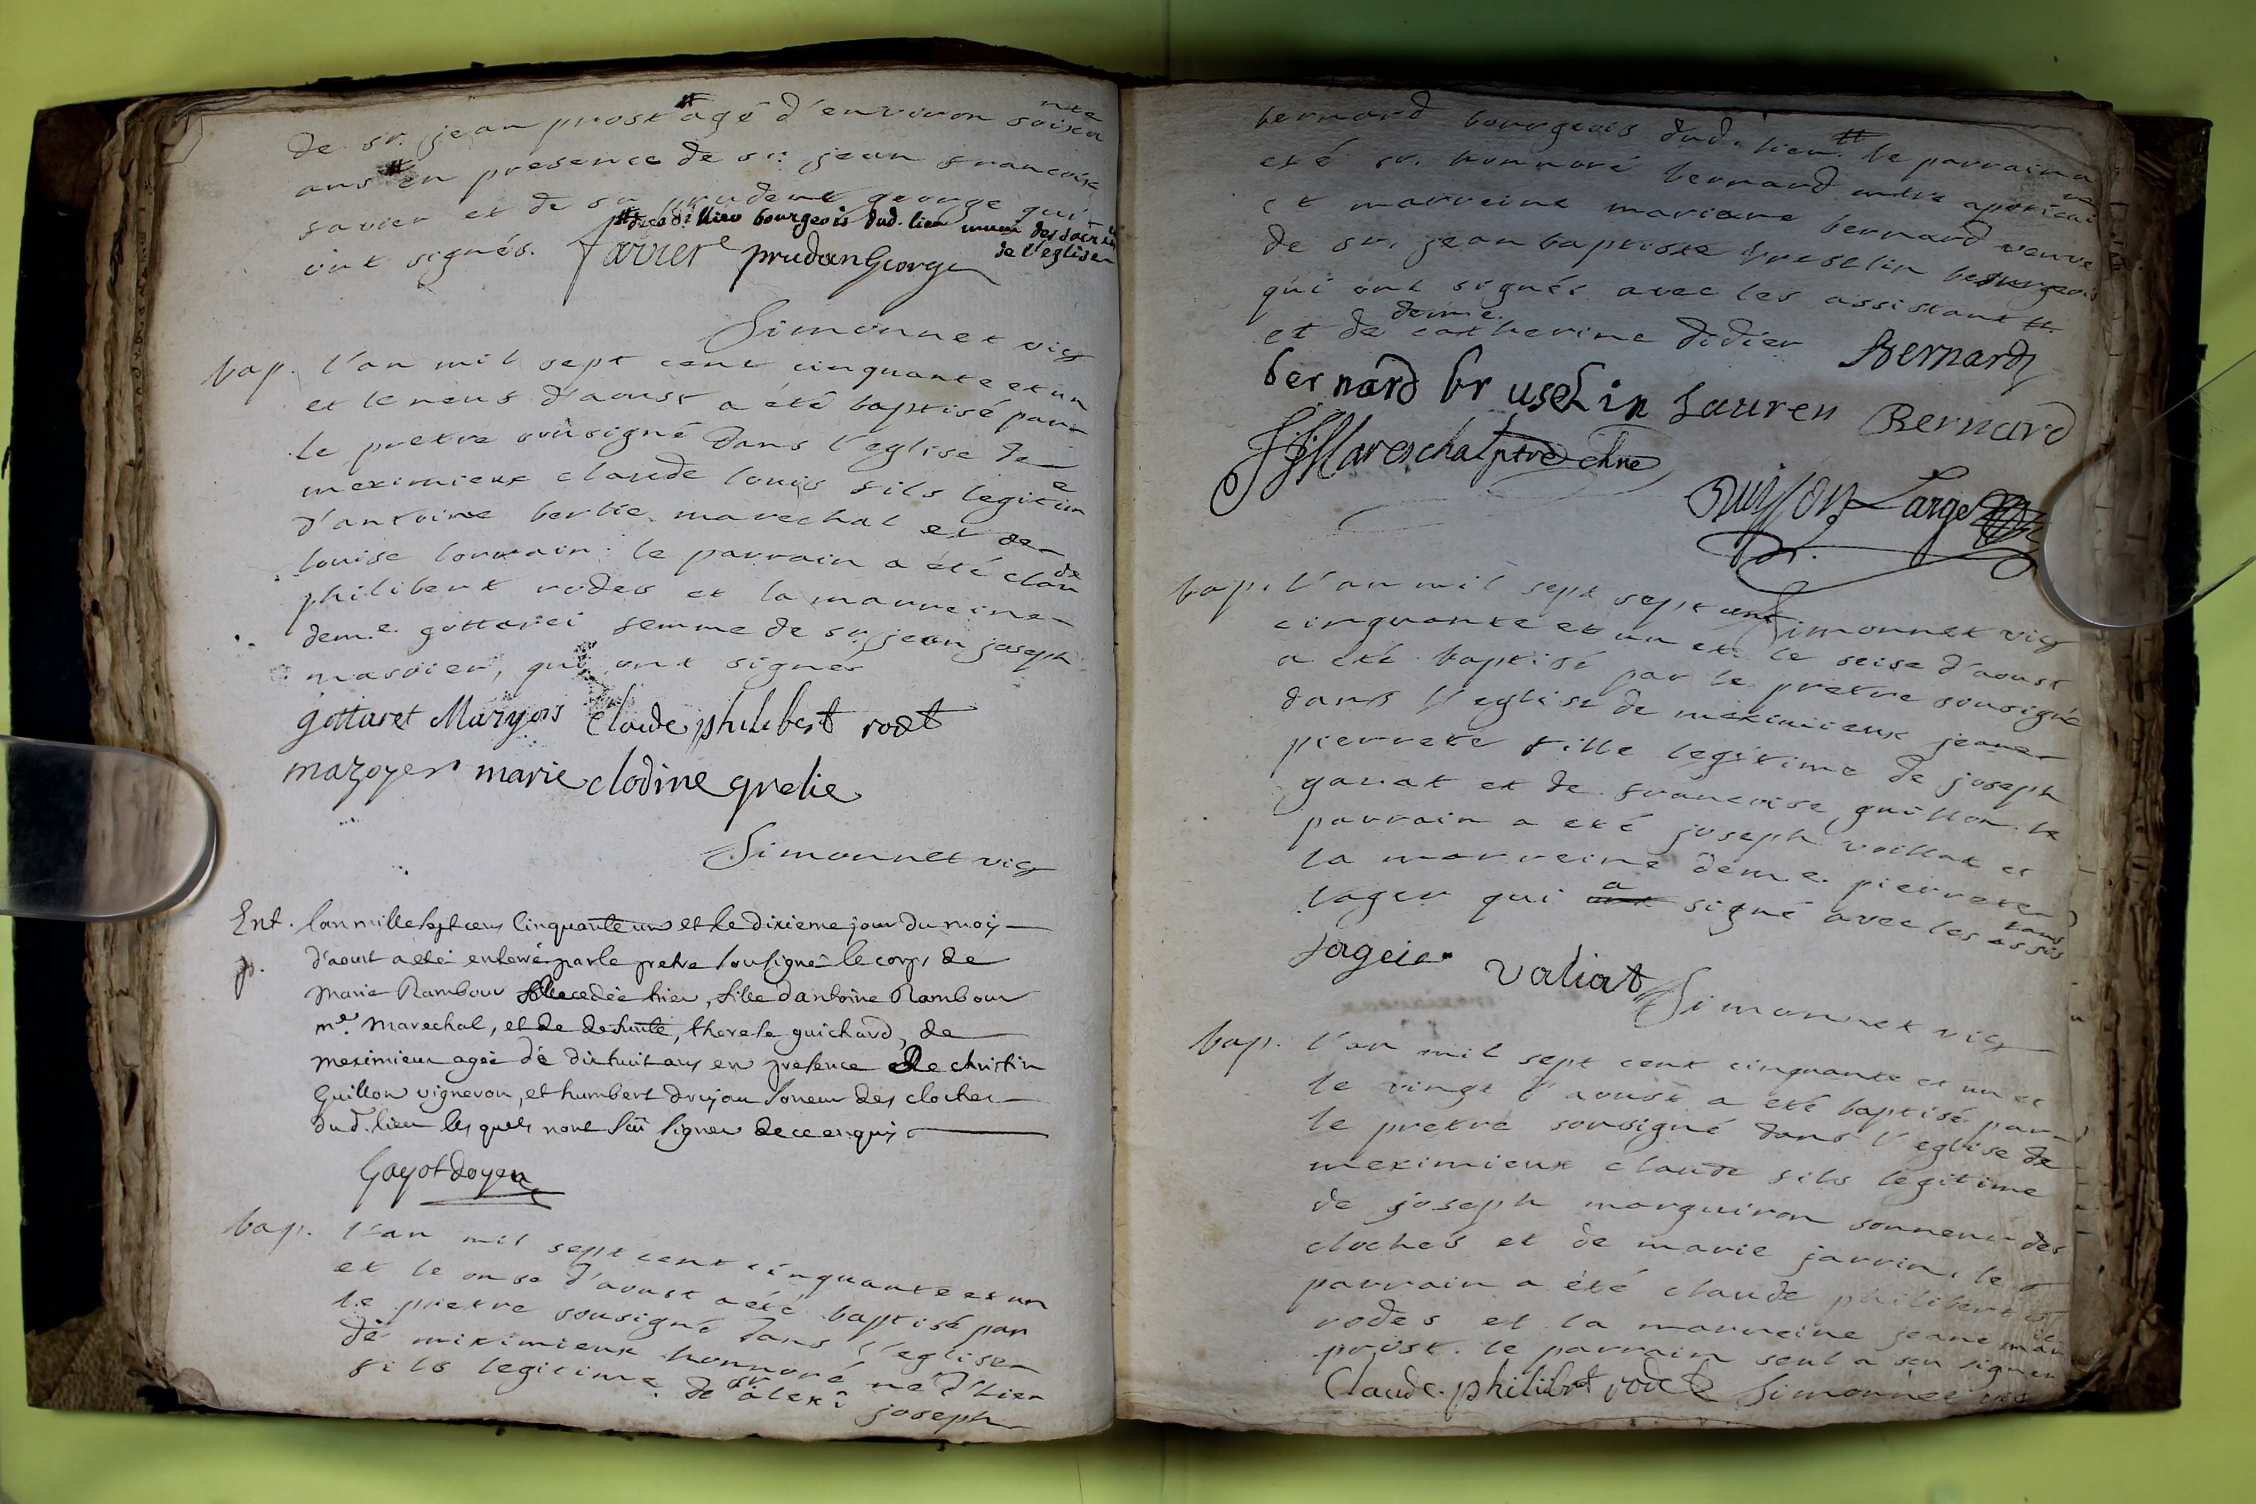 de sr. jean prost # agé d'environ soixante
ans # en presence de sr. jean francoise
favier et de sr. prudent george qui
# decedé hier bourgeois dud. lieu muni des sacrem
ont signés. favier prudan George de l'eglise
Simonnet vic
bap. l'an mil sept cent cinquante et un
et le neuf d'aoust a été baptisé par
le pretre sousigné dans l'eglise de
meximieux claude louis fils legitime
d'antoine berlie marechal et de
louise lorrain: le parrain a été claude
philibert rodes et la marreine
dem.e gottarei femme de sr. jean joseph
masoier, qui ont signes
gottaret Mazoyer Claude philibert rodet
mazoyer marie clodine grelie
Simonnet vic
Ent. l'an mille sept cens Cinquante un et le dixieme jour du mois
p. d'aoust a été enterré par le pretre sousigné le corps de
Marie Rambour decedée hier, fille d'antoine Rambour
me. Marechal, et de defunte, therese guichard, de
meximieux agée de dixhuit ans en presence de christin
Guillon vigneron, et humbert drujon soneur des cloches
dud. lieu les quels n'ont sçu signer de ce enquis
Gayot doyen
bap. l'an mil sept cent cinquante et un
et le onse d'aoust a été baptisé par
le pretre sousigné dans l'eglise
de meximieux honnoré né d'hier
fils legitime de sr. alexi joseph
bernard bourgeois dud. lieu. # le parrain a
eté sr. honnoré bernard mtre apoticai
et marreine mariane bernard veuve
de sr. jean baptiste bruselin bourgeois
qui ont signés avec les assistant #
et de demle. catherine didier Bernard
bernard bruselin Lauren Bernard
JJ Mareschal ptre chne
Buisson Large
Simonnet vic
bap. l'an mil sept sept cent
cinquante et un et le seise d'aoust
a eté baptisé par le pretre sousigné
dans l'eglise de meximieux jeane
pierrete fille legitime de joseph
ganat et de francoise guillon. le
parrain a eté joseph vaillat et
la marreine dem.e. pierrete
lager qui a signé avec les assistans
Jageir valiat Simonnet vic
bap. l'an mil sept cent cinquante et un et
le vingt d'aoust a eté baptisé par
le pretre sousigné dans l'eglise de
meximieux claude fils legitime
de joseph marguiron sonneur des
cloches et de marie jarrin. le
parrain a été claude philibert
rodes et la marreine jeane marie
prost. le parrain seul a seu signer
Claude philibert rodet Simonnet vic